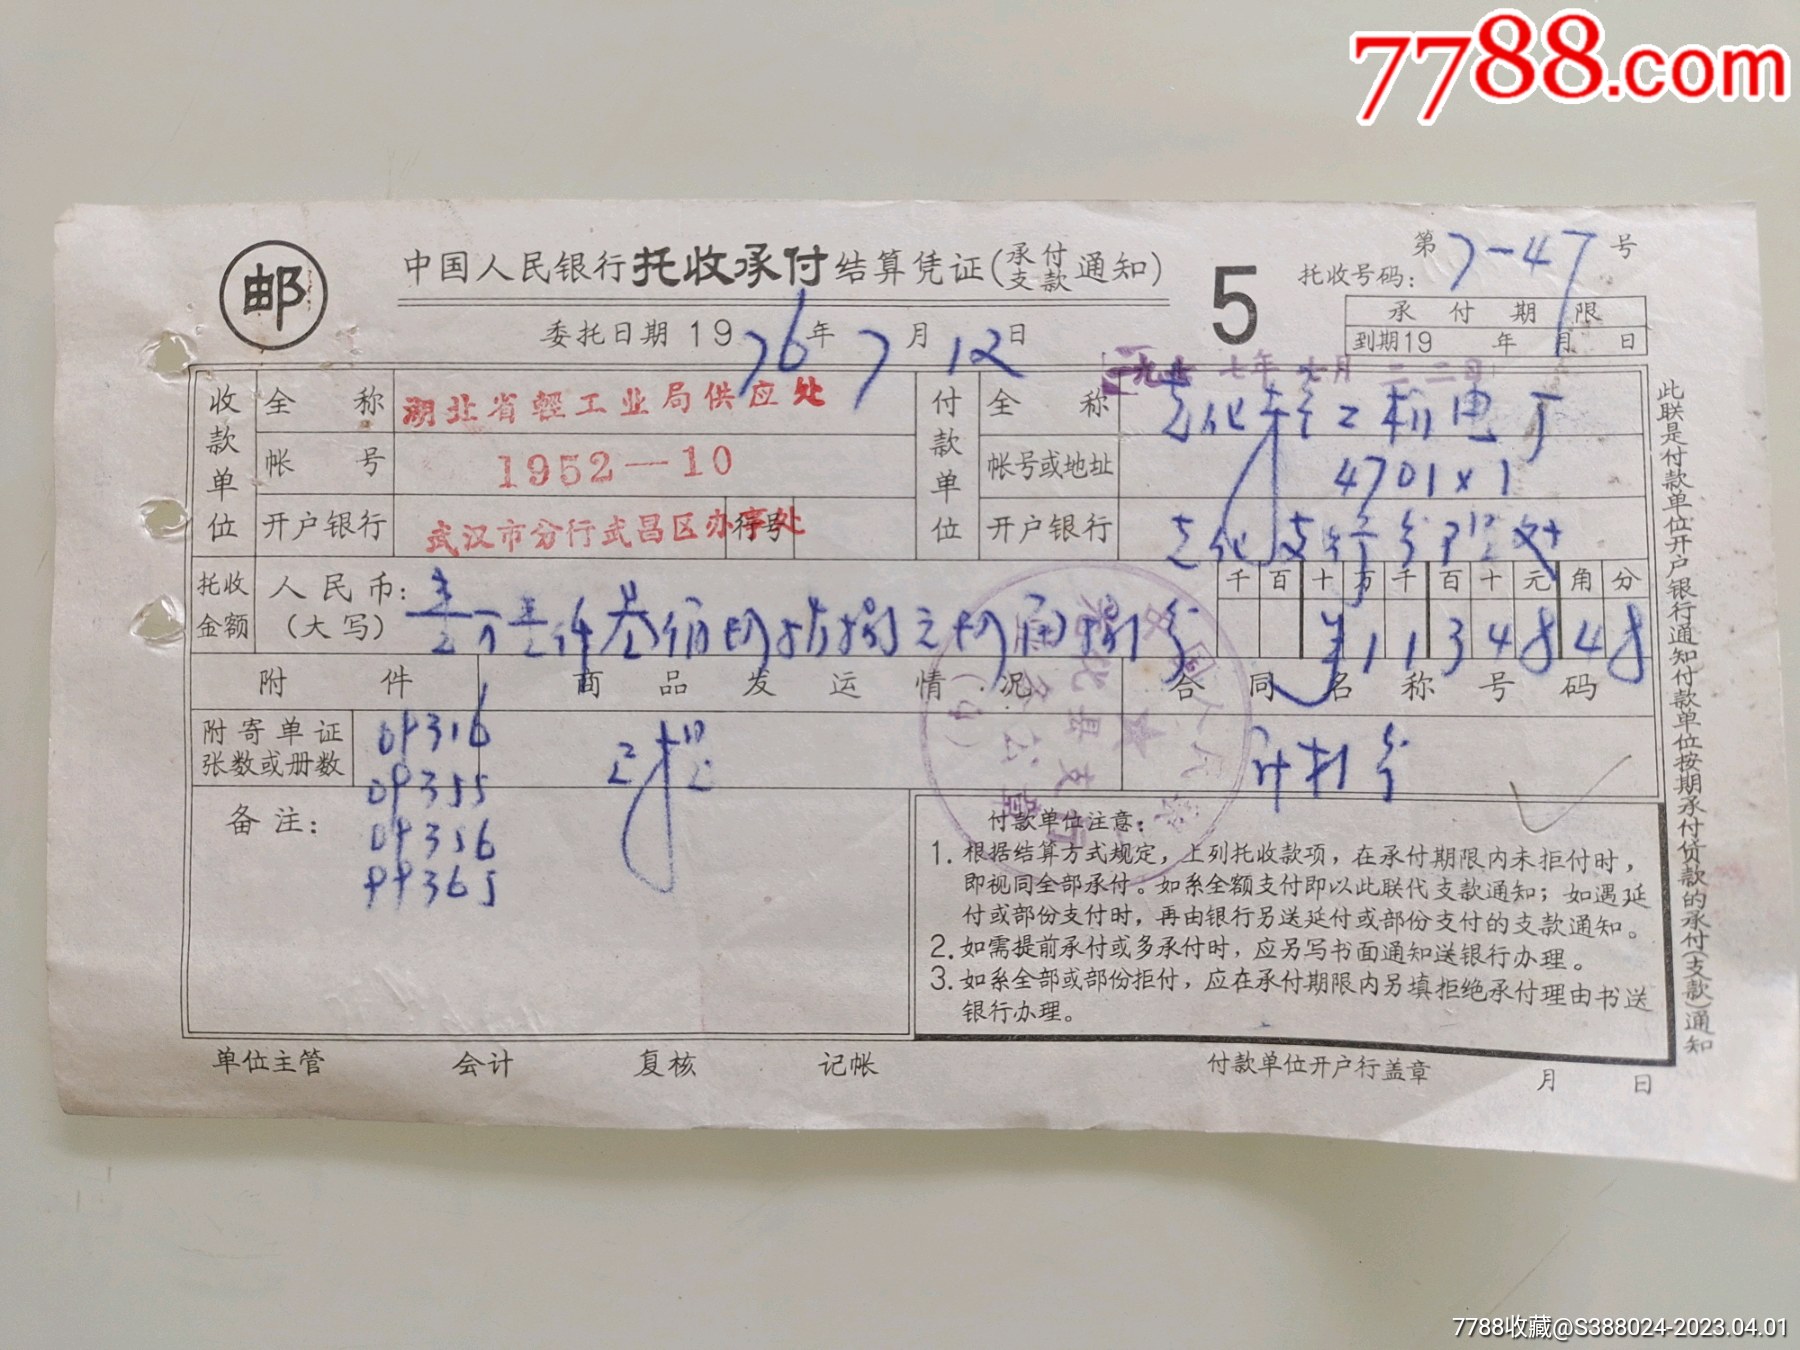 7788.com
邮
中国人民银行托收承付结算凭证(承付支款通知)
5
第 7-47 号
托收号码:
委托日期 1976年7月12日
承付期限
到期19 年 月 日
收款单位
全称 湖北省轻工业局供应处
帐号 1952—10
开户银行 武汉市分行武昌区办事处
行号
付款单位
全称
帐号或地址 4701x1
开户银行
托收金额
人民币:
(大写)
千百十万千百十元角分
¥1134848
附件
商品发运情况
合同名称号码
附寄单证
张数或册数
备注:
付款单位注意:
1.根据结算方式规定,上列托收款项,在承付期限内未拒付时,
即视同全部承付。如系全额支付即以此联代支款通知;如遇延
付或部份支付时,再由银行另送延付或部份支付的支款通知。
2.如需提前承付或多承付时,应另写书面通知送银行办理。
3.如系全部或部份拒付,应在承付期限内另填拒绝承付理由书送
银行办理。
此联是付款单位开户银行通知付款单位按期承付货款的承付(支款)通知
单位主管 会计 复核 记帐
付款单位开户行盖章 月 日
7788收藏@S388024-2023.04.01